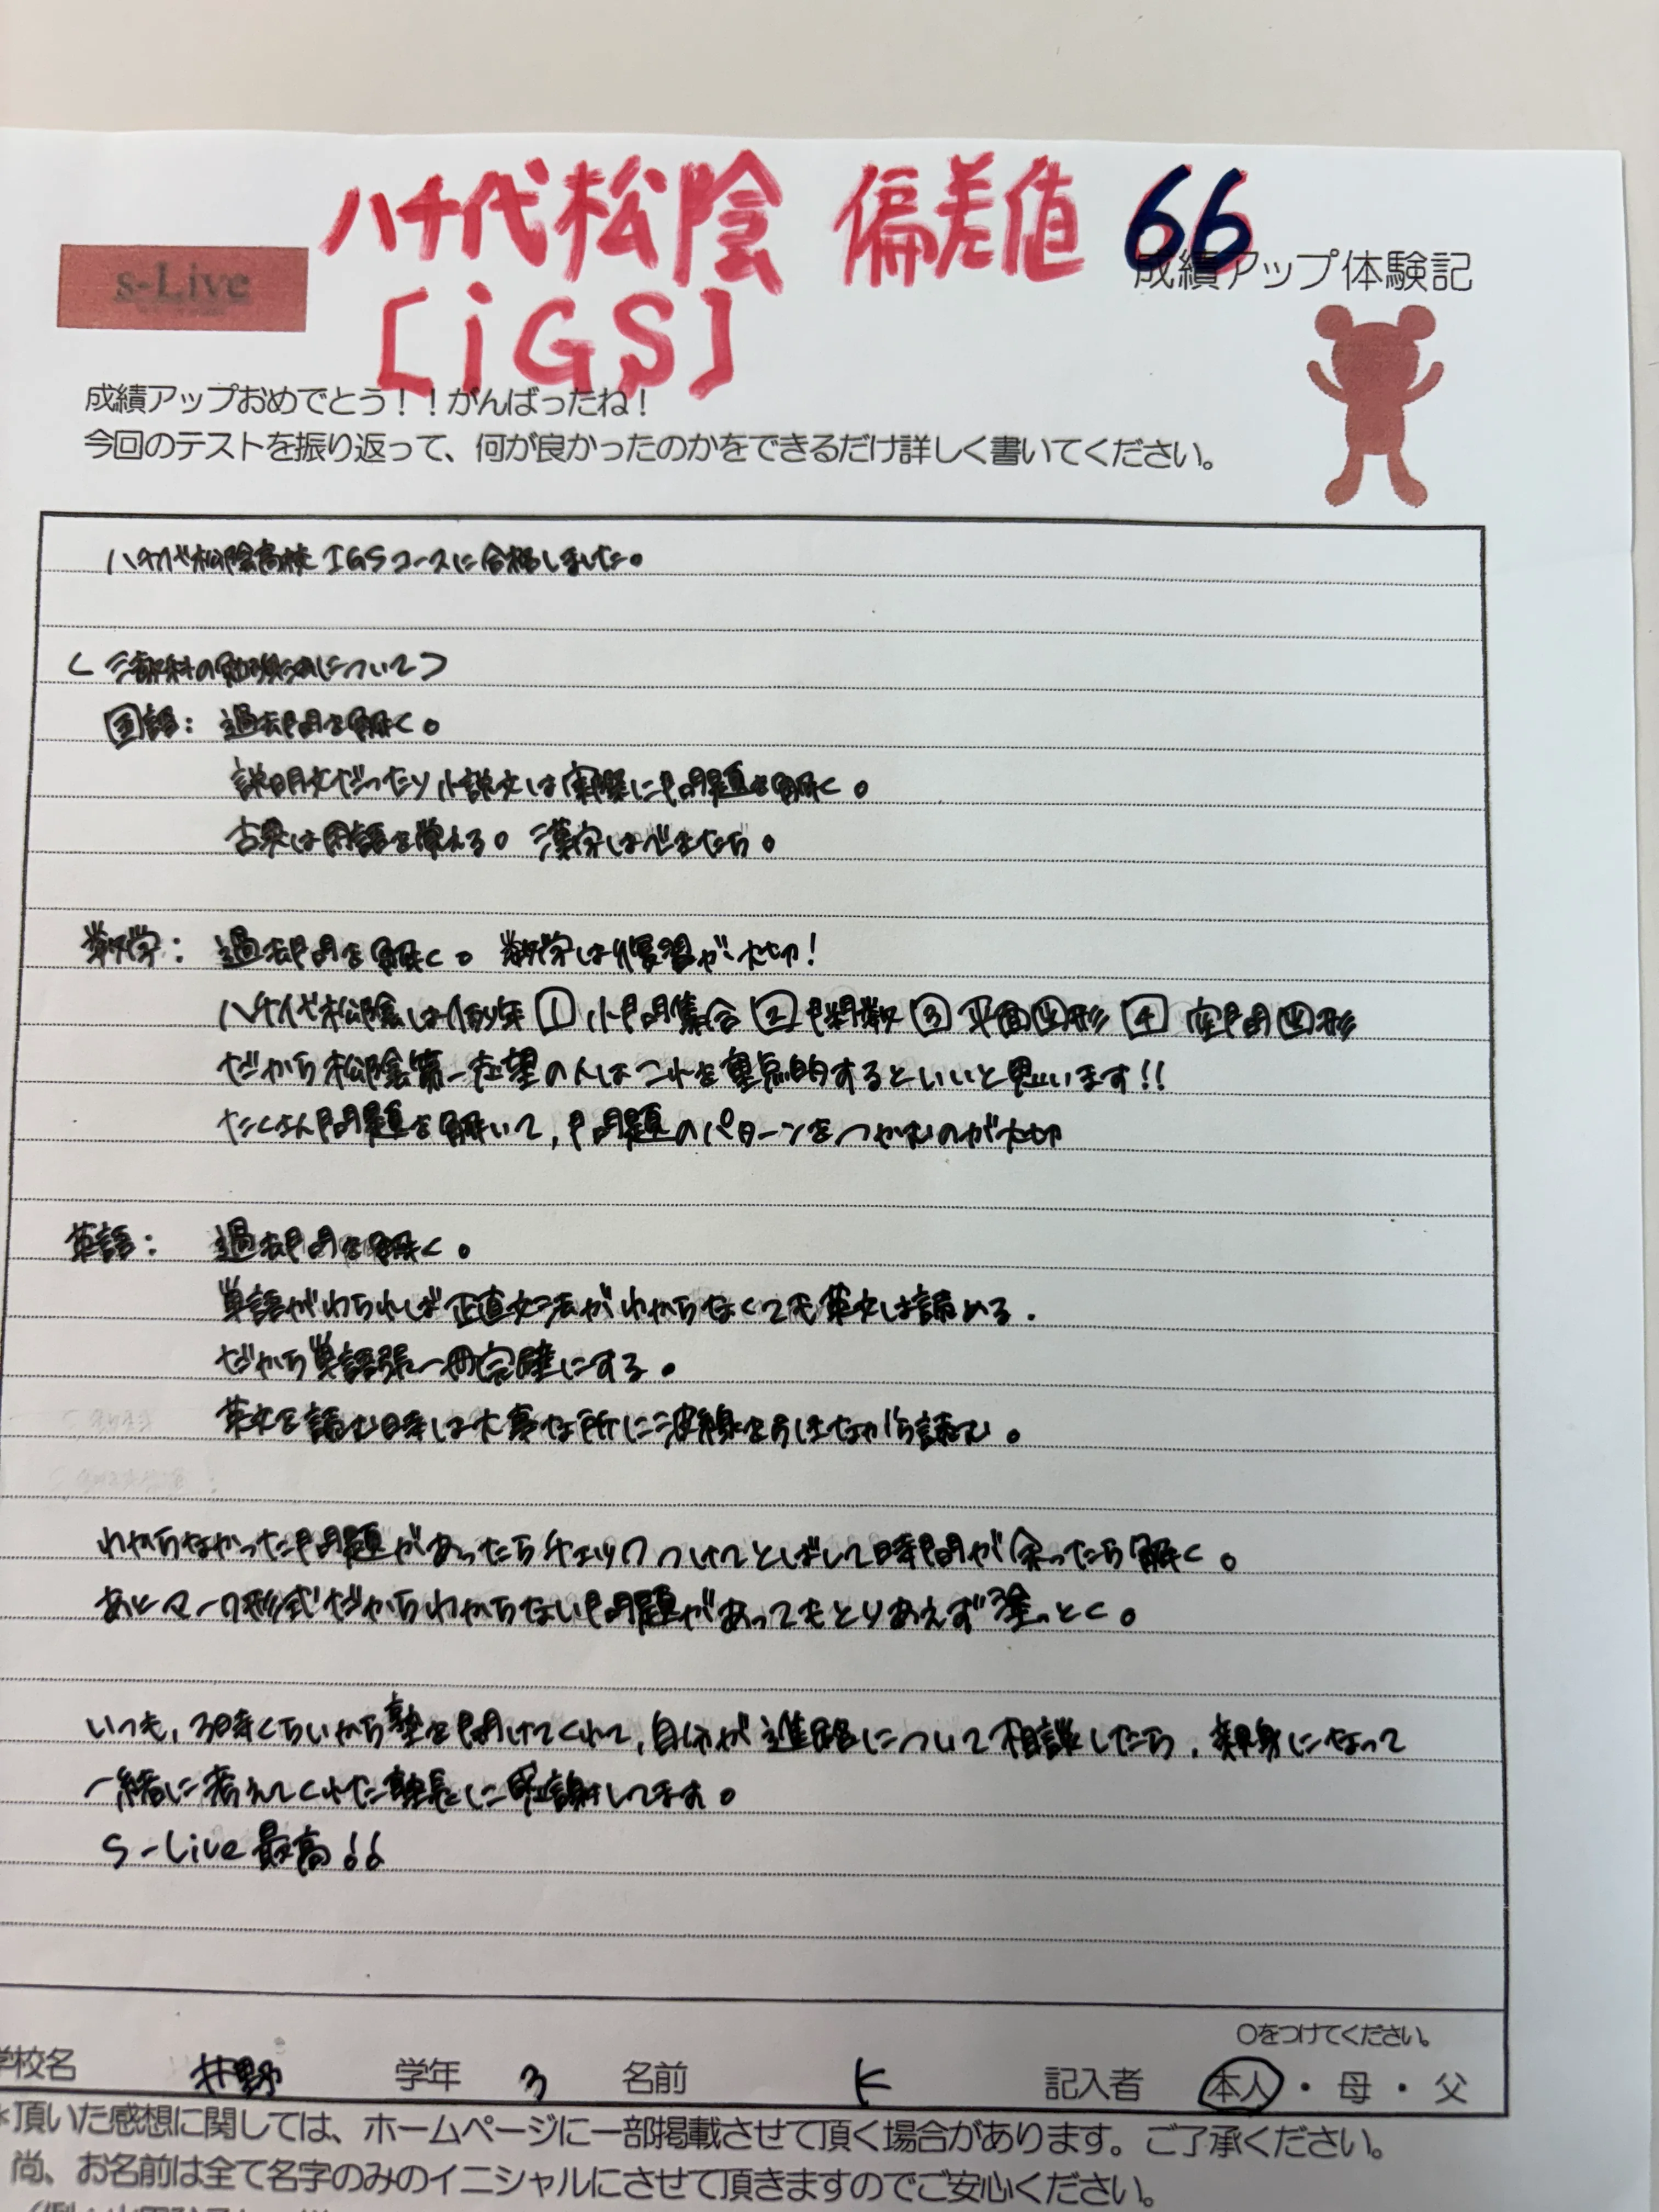 八千代松陰 偏差値 66
[iGS]
s-Live
成績アップ体験記
成績アップおめでとう！！がんばったね！
今回のテストを振り返って、何が良かったのかをできるだけ詳しく書いてください。
八千代松陰高校IGSコースに合格しました。
<三教科の勉強法について>
国語：過去問を解く。
説明文だったり小説文は実際に問題を解く。
古典は用語を覚える。漢字はできたら。
数学：過去問を解く。数学は復習が大切！
八千代松陰は例年 1 小問集合 2 関数 3 平面図形 4 空間図形
だから松陰第一志望の人はこれを重点的するといいと思います!!
たくさん問題を解いて，問題のパターンをつかむのが大切
英語：過去問を解く。
単語がわられば正直文法がわからなくても英文は読める．
だから単語張一冊完璧にする。
英文を読む時は大事な所に波線をひきながら読む。
わからなかった問題があったらチェックつけてとばして時間が余ったら解く。
あとマーク形式だからわからない問題があってもとりあえず塗っとく。
いつも，3時くらいから塾を開けてくれて，自分が進路について相談したら，親身になって
一緒に考えてくれた塾長に感謝してます。
S-Live最高!!
○をつけてください。
学校名 井野 学年 3 名前 K 記入者 本人・母・父
*頂いた感想に関しては、ホームページに一部掲載させて頂く場合があります。ご了承ください。
尚、お名前は全て名字のみのイニシャルにさせて頂きますのでご安心ください。